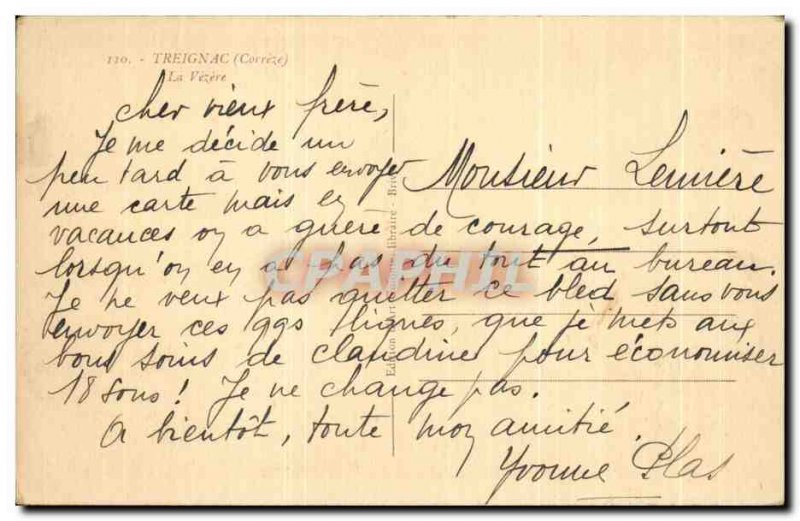 110. - TREIGNAC (Corrèze)
La Vézère
Cher vieux frère,
Je me décide un
peu tard à vous envoyer
une carte mais en
vacances on a guère de courage, surtout
lorsqu'on en a pas du tout au bureau.
Je ne veux pas quitter ce bled sans vous
envoyer ces qqs lignes, que je mets aux
bons soins de Claudine pour économiser
18 sous! Je ne change pas.
A bientôt, toute mon amitié.
Yvonne Plas
Monsieur Lemière
Edition libraire
CPAPHIL